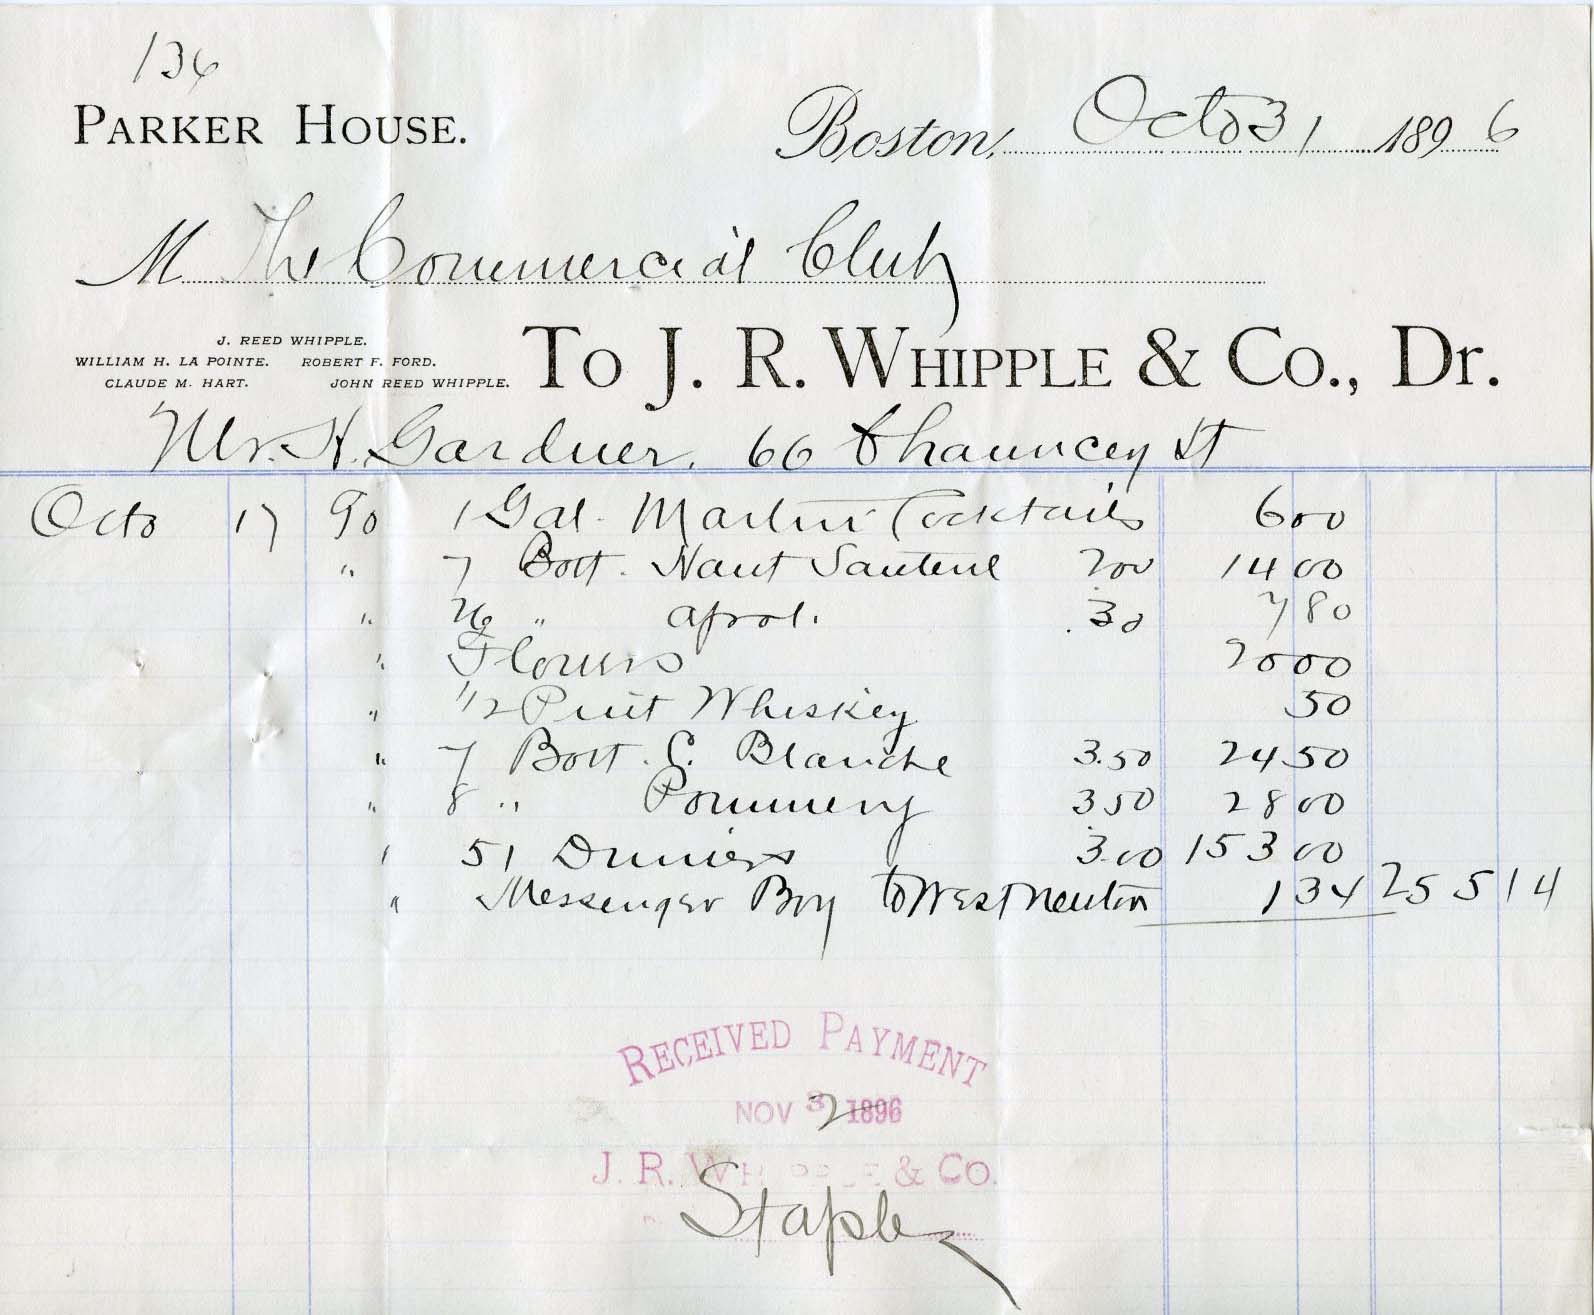 136
PARKER HOUSE.
Boston, Octo 31 1896
M The Commercial Club
J. REED WHIPPLE.
WILLIAM H. LA POINTE. ROBERT F. FORD.
CLAUDE M. HART. JOHN REED WHIPPLE.
To J. R. WHIPPLE & CO., Dr.
Mr. H. Gardner, 66 Chauncey St
Octo 17 To 1 Gal. Martini Cocktails 6 00
" 7 Bott. Haut Sauterne 2 00 14 00
" 26 " Apol. .30 7 80
" Flowers 20 00
" 1/2 Pint Whiskey 50
" 7 Bott. C. Blanche 3.50 24 50
" 8 " Pommery 3 50 28 00
" 51 Dinners 3.00 153 00
" Messenger Boy to West Newton 1 34 255 14
RECEIVED PAYMENT
NOV 3 2 1896
J. R. WHIPPLE & CO.
Staples